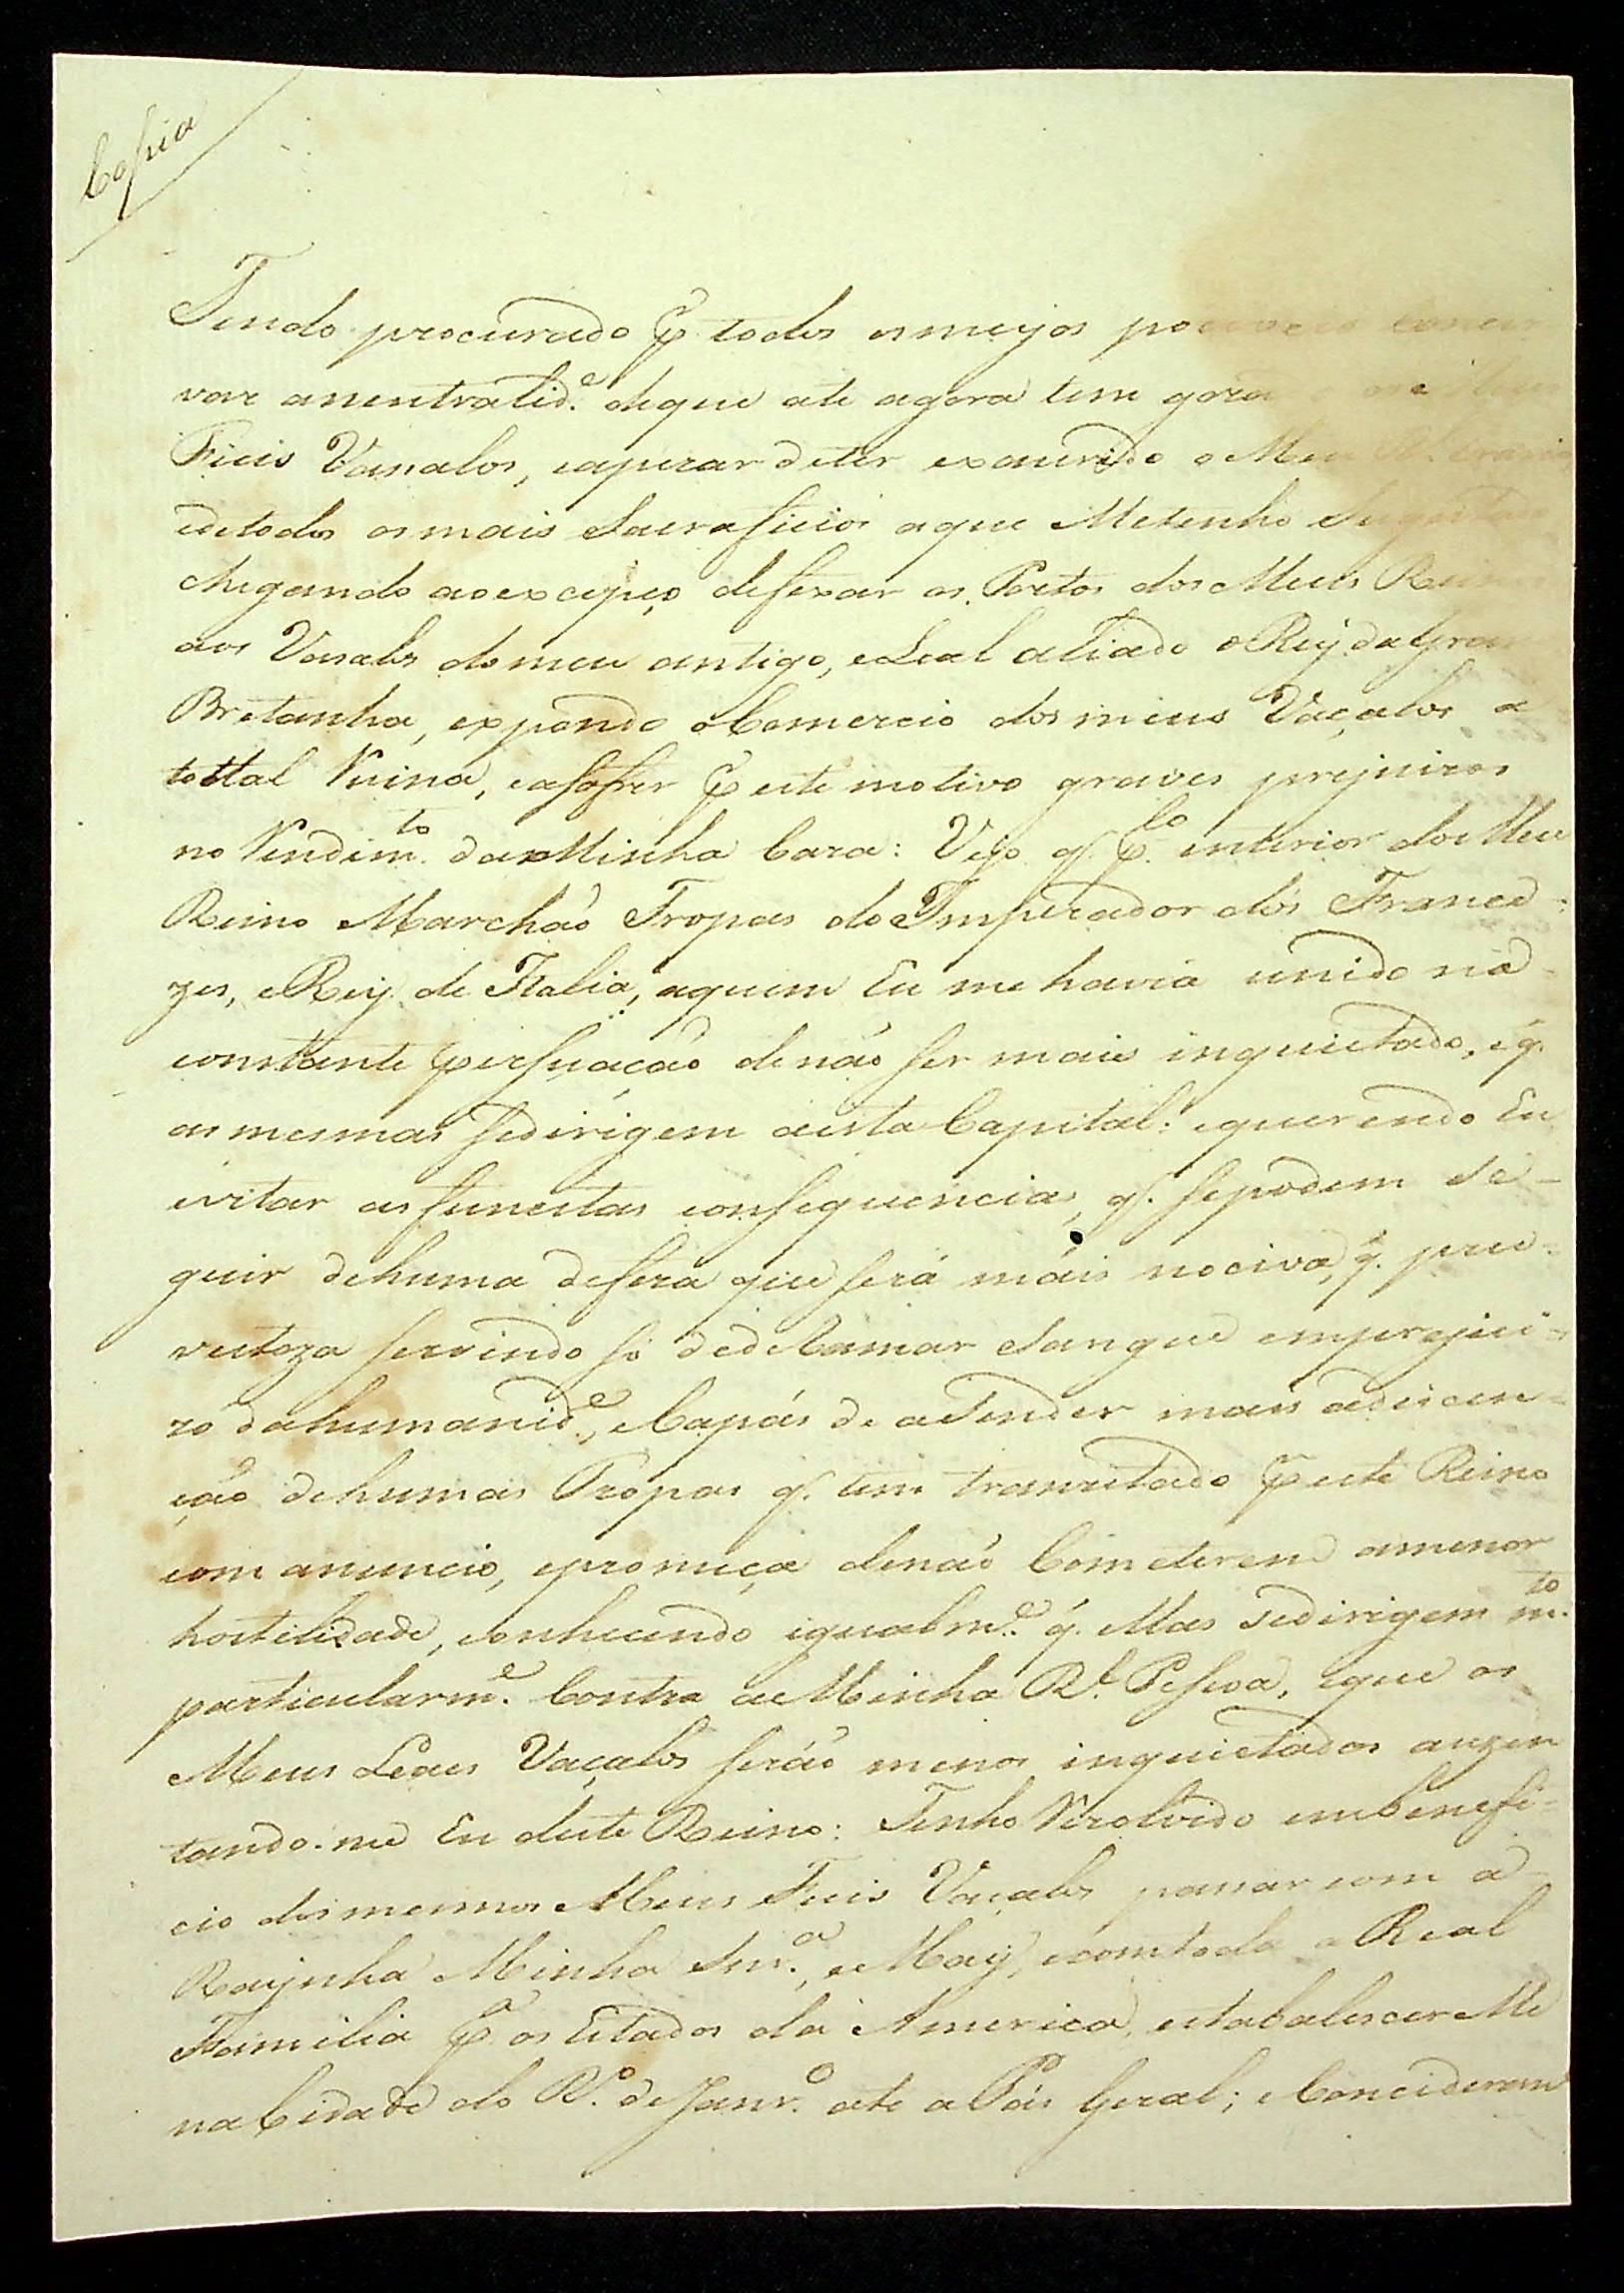 Copia
Tendo procurado p. todos os meyos
var aneutralid.e deque ate agora tem
Fieis Vasalos, eapezar deter exaurido o Meu
edetodos osmais Sacraficios aque Metenho
chegando aoexcepço defexar os Portos dos Meus
aos Vasalos domeu antigo, eLeal aliado o Rey da Gran
Bretanha, expondo o Comercio dos meus Vaçalos a
tottal Ruina, easofrer p. este motivo graves prejuizos
no Rendim.to da Minha Caza: Vejo q. p.lo interior do Meu
Reino Marcháo Tropas do Imperador dos France
zes, e Rey de Italia, aquem Eu me havia unido na
constante persuaçaõ denáo ser mais inquietado, e q.
as mesmas sedirigem aesta Capital: equerendo Eu
evitar as funestas consequencias, q. sepodem Se-
guir dehuma defeza que será mais nociva, q. pro-
veitoza servindo só dedeRamar Sangue emprejui-
zo dahumanid.e, e Capás de aSender mais adiscen-
çáo dehumas Tropas q. tem transitado p. este Reino
com anuncio, epromeça denáo Cometerem amenor
hostilidade, conhecendo igualm.e q. ellas Sedirigem m.to
particularm.e Contra a Minha R.l Pessoa, eque os
Meus Leaes Vaçalos seráo menos inquietados auzen
tando-me Eu deste Reino: Tenho Rezolvido embenefi-
cio dosmesmos Meus Fieis Vaçalos passar com a
Raynha Minha Snr.a, e May, ecomtoda a Real
Familia p.a os Estados da America, estabalescer Me
na Cidade do R.o de Janr.o ate a Pás Geral; e Conciderand